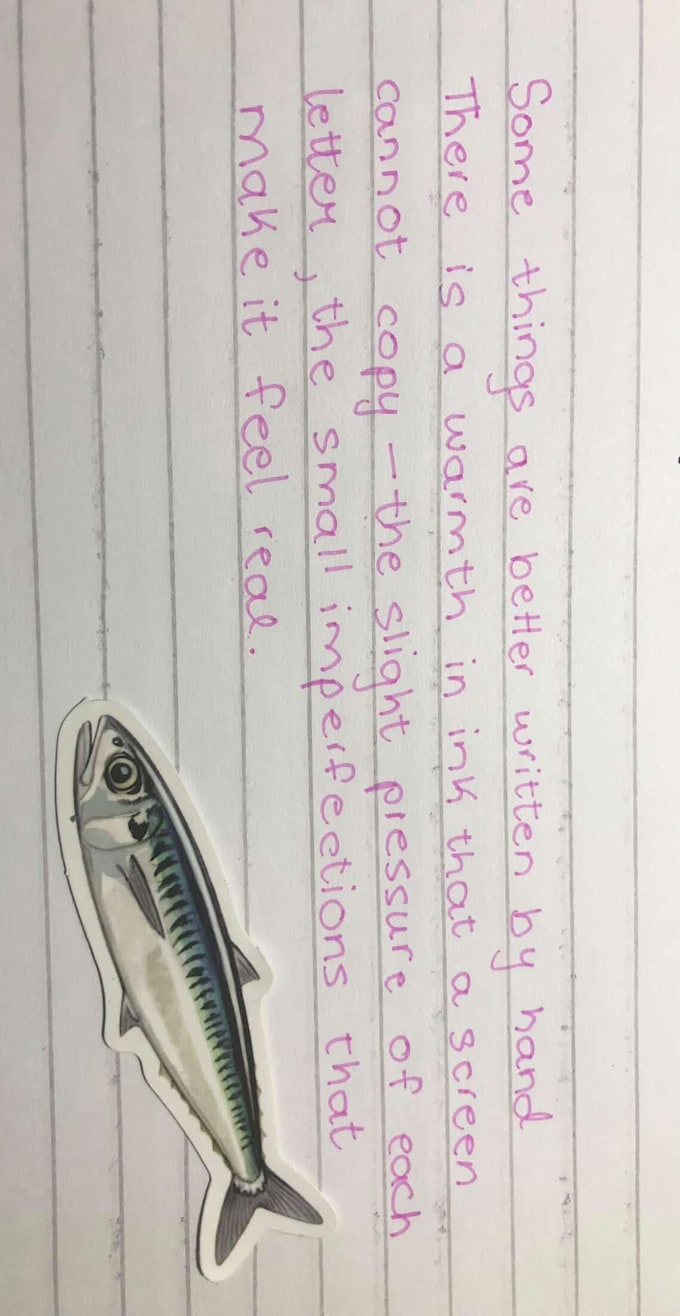 Some things are better written by hand
There is a warmth in ink that a screen
cannot copy – the slight pressure of each
letter, the small imperfections that
make it feel real.